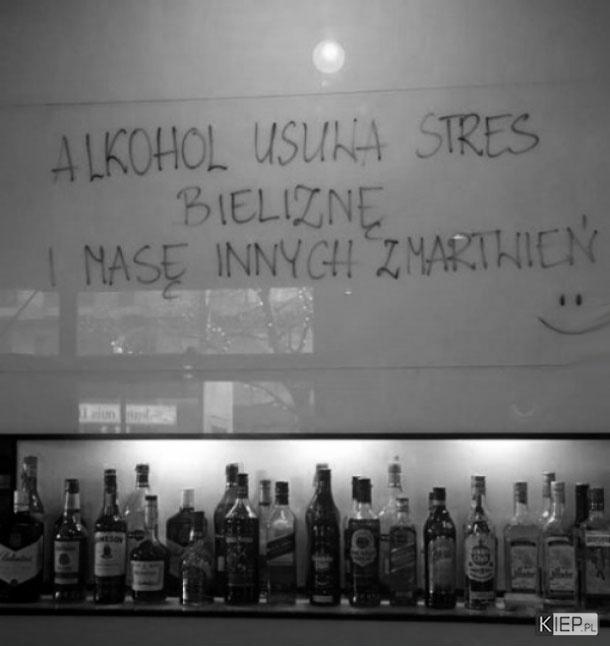 ALKOHOL USUWA STRES
BIELIZNĘ
I MASĘ INNYCH ZMARTWIEŃ
JAMESON
KIEP.PL